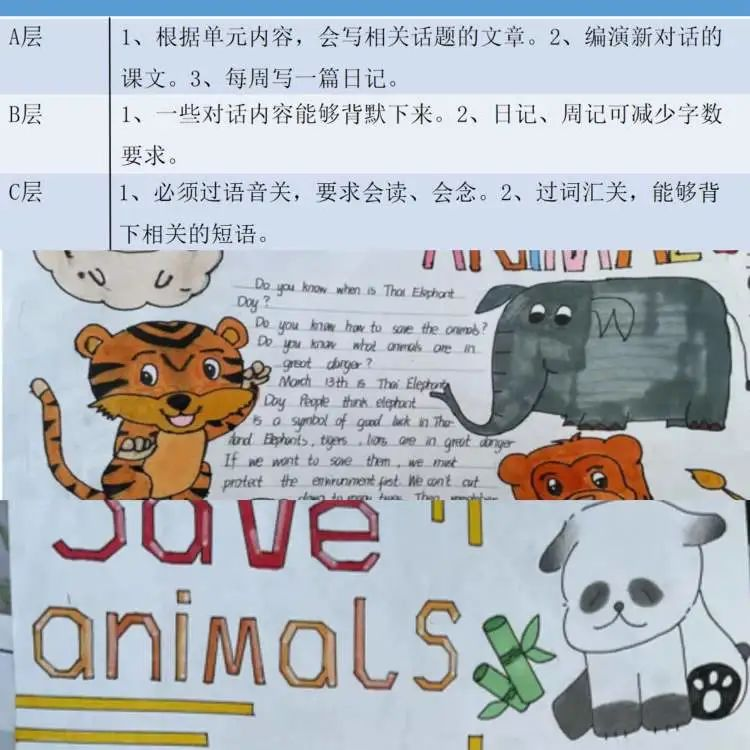 A层
1、根据单元内容，会写相关话题的文章。2、编演新对话的
课文。3、每周写一篇日记。
B层
1、一些对话内容能够背默下来。2、日记、周记可减少字数
要求。
C层
1、必须过语音关，要求会读、会念。2、过词汇关，能够背
下相关的短语。
Do you know when is Thai Elephant
Day?
Do you know how to save the animals?
Do you know what animals are in
great danger?
March 13th is Thai Elephant
Day People think elephant
is a symbol of good luck in Thai-
land Elephants, tigers, lions are in great danger
If we want to save them, we must
protect the environment first. We can't cut
down to many trees. Then
Save
animals